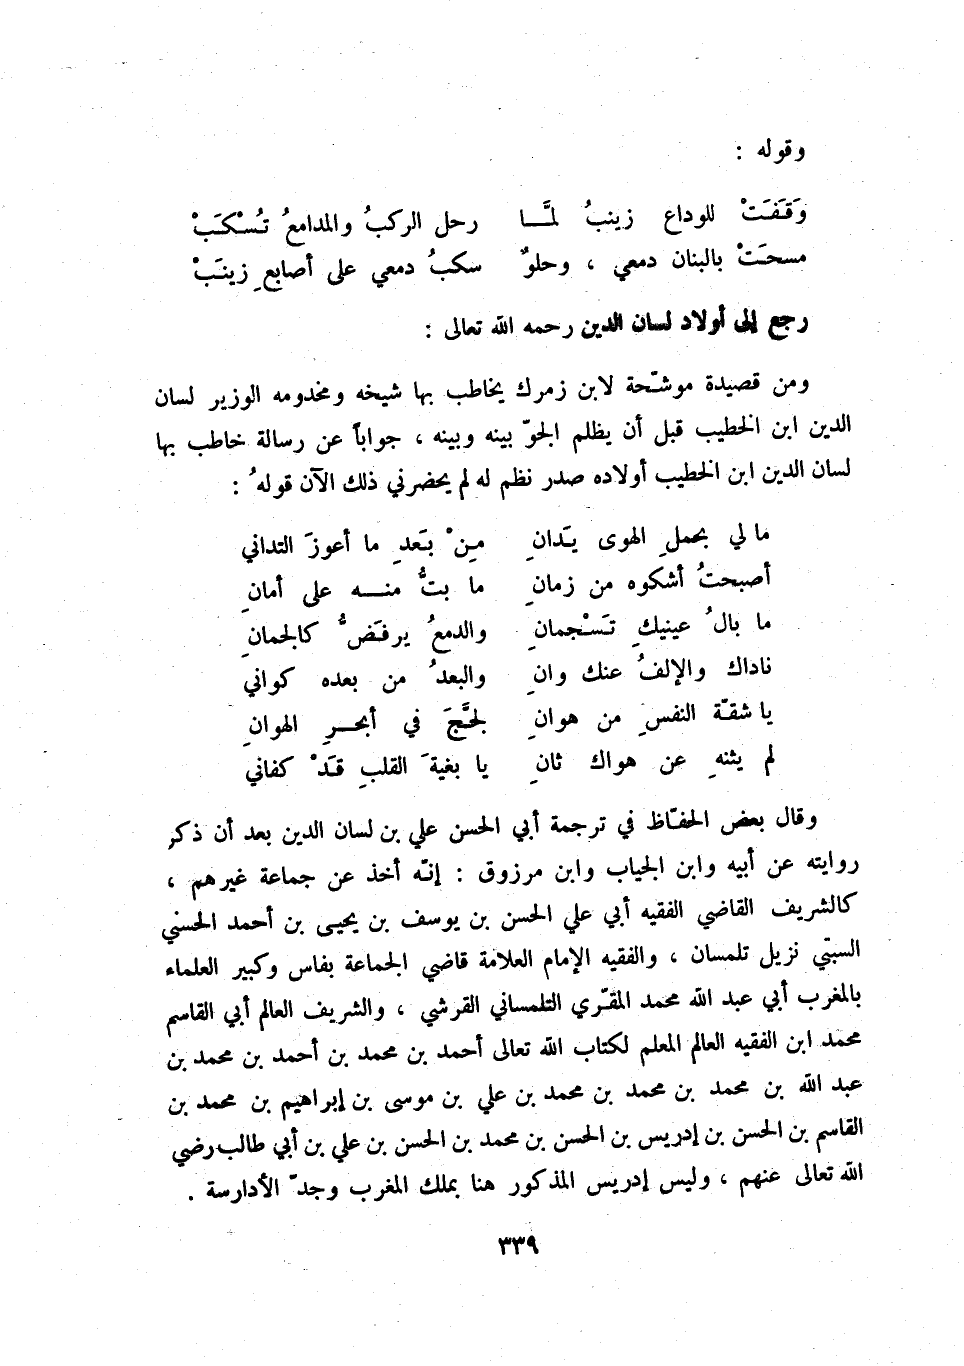 وقوله :
وَقَفَتْ للوداع زينبُ لمَّا رحل الركبُ والمدامعُ تُسْكَبْ
مسحَتْ بالبنان دمعي ، وحلوٌ سكبُ دمعي على أصابعِ زينَبْ
رجع إلى أولاد لسان الدين رحمه الله تعالى :
ومن قصيدة موشّحة لابن زمرك يخاطب بها شيخه ومخدومه الوزير لسان
الدين ابن الخطيب قبل أن يظلم الجوّ بينه وبينه ، جواباً عن رسالة خاطب بها
لسان الدين ابن الخطيب أولاده صدر نظم له لم يحضرني ذلك الآن قولهُ :
ما لي بحملِ الهوى يَدانِ مِنْ بَعدِ ما أعوزَ التداني
أصبحتُ أشكوه من زمانِ ما بتُّ منه على أمانِ
ما بالُ عينيكِ تَسْجمانِ والدمعُ يرفَضُّ كالجمانِ
ناداك والإلفُ عنك وانِ والبعدُ من بعده كواني
يا شقّة النفسِ من هوانِ لجَّجَ في أبحرِ الهوانِ
لم يثنهِ عن هواك ثانِ يا بغيةَ القلبِ قَدْ كفاني
وقال بعض الحفّاظ في ترجمة أبي الحسن علي بن لسان الدين بعد أن ذكر
روايته عن أبيه وابن الجياب وابن مرزوق : إنّه أخذ عن جماعة غيرهم ،
كالشريف القاضي الفقيه أبي علي الحسن بن يوسف بن يحيى بن أحمد الحسني
السبتي نزيل تلمسان ، والفقيه الإمام العلامة قاضي الجماعة بفاس وكبير العلماء
بالمغرب أبي عبد الله محمد المقّري التلمساني القرشي ، والشريف العالم أبي القاسم
محمد ابن الفقيه العالم المعلم لكتاب الله تعالى أحمد بن محمد بن أحمد بن محمد بن
عبد الله بن محمد بن محمد بن محمد بن علي بن موسى بن إبراهيم بن محمد بن
القاسم بن الحسن بن إدريس بن الحسن بن محمد بن الحسن بن علي بن أبي طالب رضي
الله تعالى عنهم ، وليس إدريس المذكور هنا بملك المغرب وجدّ الأدارسة .
٣٣٩